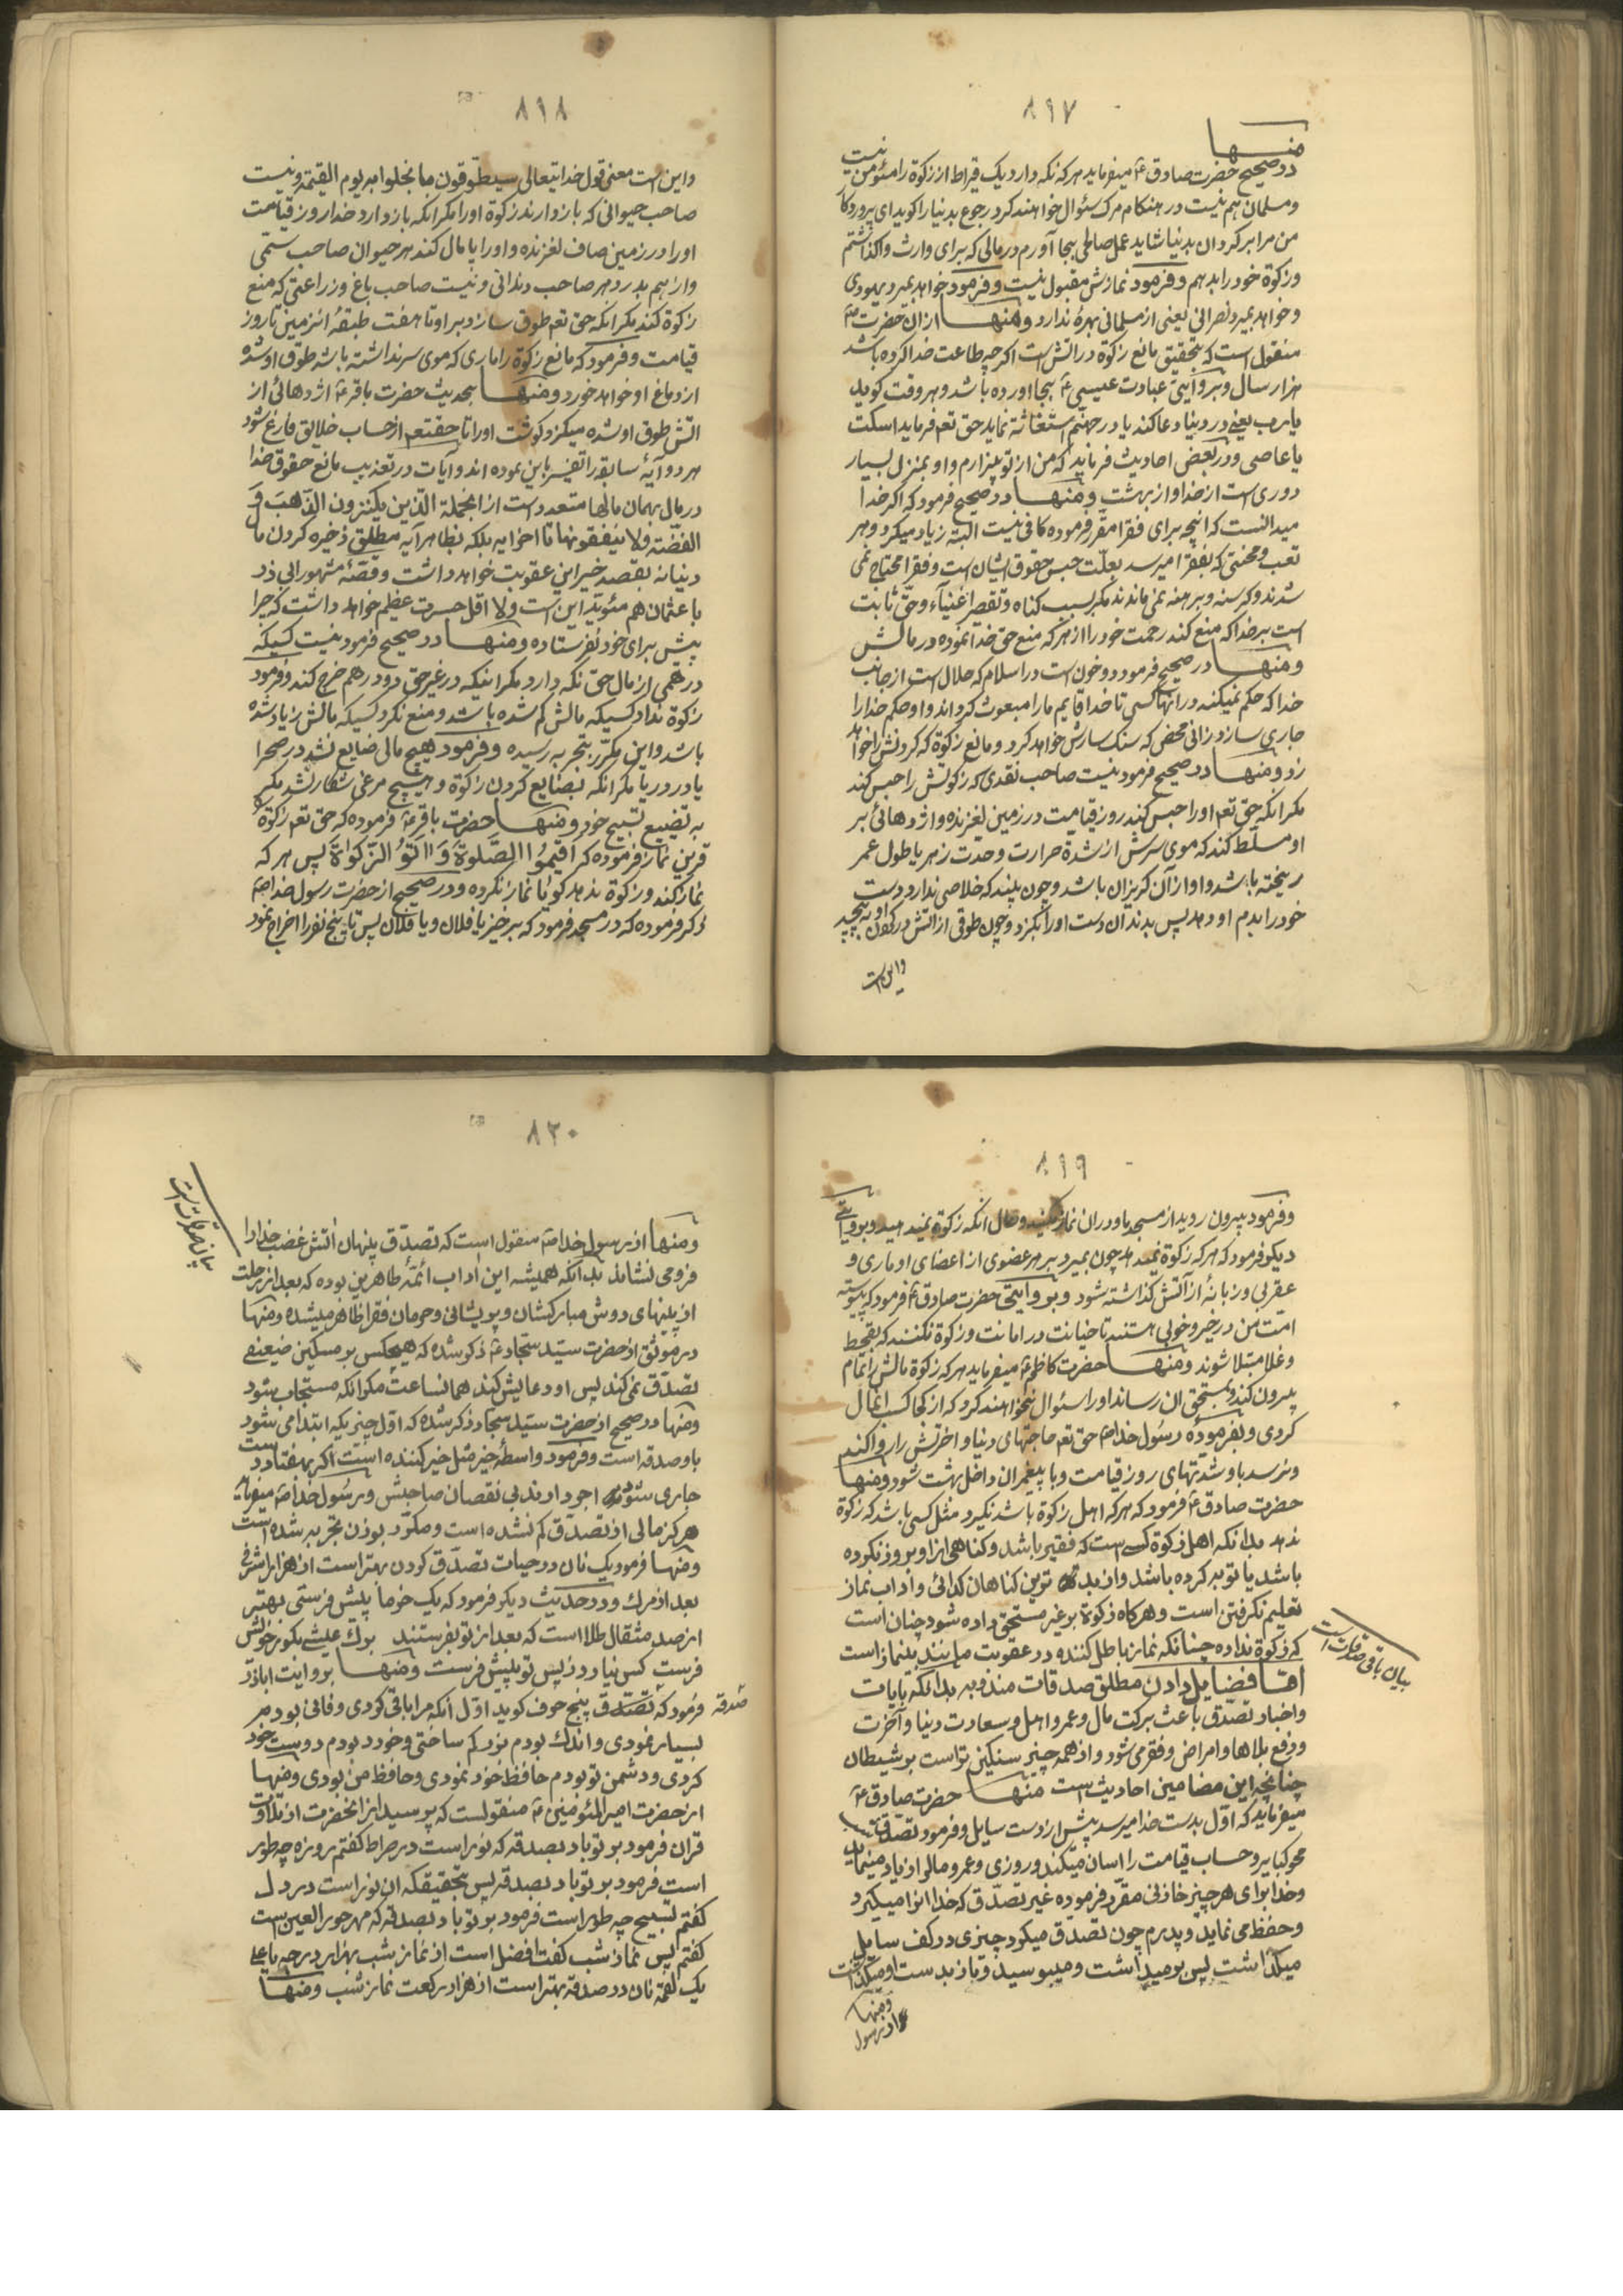 ٨١٧
منها
در صحیح حضرت صادق ع میفرماید هر که نکه دارد یک قیراط از زکوة را مئومن نیست
و مسلمان هم نیست در هنکام مرک سئوال خواهند کرد رجوع بدنیا را کوید ای پروردکار
من مرا بر کردان بدنیا شاید عمل صالحی بجا آورم در مالی که برای وارث واکذاشتم
و زکوة خود را بدهم و فرمود نمازش مقبول نیست و فرمود خواهد بمیرد یهودی
و خواهد بمیرد نصرانی یعنی از مسلمانی بهرهٔ ندارد و منها از ان حضرت
منقول است که بتحقیق مانع زکوة در اتش است اکر چه طاعت خدا کرده باشد
هزار سال و بروایتی عبادت عیسی ع بجا اورده باشد و هر وقت کوید
یا رب یعنی در دنیا دعا کند یا در جهنم استغاثه نماید حق تعم فرماید اسکت
یا عاصی و در بعض احادیث فرماید که من از تو بیزارم و او بمنزل بسیار
دوری است از خدا و از بهشت و منها در صحیح فرمود که اکر خدا
میدانست که انچه برای فقرا مقرر فرموده کافی نیست البته زیاد میکرد و هر
تعب و محنتی که بفقرا میرسد بعلت حبس حقوق ایشان است و فقرا محتاج نمی
شدند و کرسنه و برهنه نمی ماندند مکر بسبب کناه و تقصیر اغنیآء و حق ثابت
است بر خدا که منع کند رحمت خود را از هر که منع حق خدا نموده در مالش
و منها در صحیح فرمود دو خون است در اسلام که حلال است از جانب
خدا که حکم نمیکند در انها کسی تا خدا قایم ما را مبعوث کرداند و او حکم خدا را
جاری سازد زانی محض که سنک سارش خواهد کرد و مانع زکوة که کردنش را خواهد
زد و منها در صحیح فرمود نیست صاحب نقدی که زکوتش را حبس کند
مکر انکه حق تعم او را حبس کند روز قیامت در زمین لغزنده و اژدهائی بر
او مسلط کند که موی سرش از شدة حرارت و حدت زهر یا طول عمر
ریخته باشد و او از آن کریزان باشد و چون بیند که خلاصی ندارد دست
خود را بدم او دهد پس بدندان دست او را بکزد و چون طوقی از اتش در کردن او به پیچد
و این است
٨١٨
و این است معنی قول خدایتعالی سیطوقون ما بخلوا به یوم القیمة و نیست
صاحب حیوانی که باز دارند زکوة او را مکر انکه باز دارد خدا روز قیامت
او را در زمین صاف لغزنده و او را پا مال کند هر حیوان صاحب سمی
و از هم بدرد هر صاحب دندانی و نیست صاحب باغ و زراعتی که منع
زکوة کند مکر انکه حق تعم طوق سازد بر او تا هفت طبقهٔ ان زمین تا روز
قیامت و فرمود که مانع زکوة را ماری که موی سر نداشته باشد طوق او شده
از دماغ او خواهد خورد و منها بحدیث حضرت باقر ع اژدهائی از
اتش طوق او شده میکزد کوشت او را تا حقتعم از حساب خلایق فارغ شود
هر دو آیهٔ سابقه را تفسیر باین نموده اند و آیات در تعذیب مانع حقوق خدا
در مال بهمان مالها متعدد است از انجمله الذین یکنزون الذهب و
الفضة و لا ینفقونها تا اخر ایه بلکه بظاهر آیه مطلق ذخیره کردن مال
دنیا نه بقصد خیر این عقوبت خواهد داشت و قصّهٔ مشهور ابی ذر
با عثمان هم مئوید این است و لا اقل حسرت عظیم خواهد داشت که چرا
پیش برای خود نفرستاده و منها در صحیح فرمود نیست کسیکه
درهمی از مال حق نکه دارد مکر اینکه در غیر حق دو درهم خرج کند و فرمود
زکوة نداد کسیکه مالش کم شده باشد و منع نکرد کسیکه مالش زیاد شده
باشد و این مکرّر بتجربه رسیده و فرمود هیچ مالی ضایع نشد در صحرا
یا در دریا مکر انکه بضایع کردن زکوة و هیچ مرغی شکار نشد مکر
به تضییع تسبیح خود و منها حضرت باقر ع فرموده که حق تعم زکوة
قرین نماز فرموده که اقیموا الصلوة و اتوا الزکواة پس هر که
نماز کند و زکوة ندهد کویا نماز نکرده و در صحیح از حضرت رسول خدا ص
ذکر فرموده که در مسجد فرمود که برخیز یا فلان و یا فلان پس تا پنج نفر را اخراج نمود
٨١٩
و فرمود بیرون روید از مسجد ما و در ان نماز نکنید و حال انکه زکوة نمیدهید و بروایتی
دیکر فرمود که هر که زکوة نمیدهد چون بمیرد بر هر عضوی از اعضای او ماری و
عقربی و زبانهٔ از آتش کذاشته شود و بروایتی حضرت صادق ع فرمود که پیوسته
امت من در خیر و خوبی هستند تا خیانت در امانت و زکوة نکنند که بقحط
و غلا مبتلا شوند و منها حضرت کاظم ع میفرماید هر که زکوة مالش را تمام
بیرون کند و بمستحق ان رساند او را سئوال نخواهند کرد که از کجا کسب انمال
کردی و بفرمودهٔ رسول خدا ص حق تعم حاجتهای دنیا و اخرتش را روا کند
و برسد باو شدتهای روز قیامت و با پیغمبران داخل بهشت شود و منها
حضرت صادق ع فرمود که هر که اهل زکوة باشد نکیرد مثل کسی باشد که زکوة
ندهد بدانکه اهل زکوة کسی است که فقیر باشد و کناهی از او بروز نکرده
باشد یا توبه کرده باشد و از بدترین کناهان کدائی و اداب نماز
تعلیم نکرفتن است و هر کاه زکوة بر غیر مستحق داده شود چنان است
که زکوة نداده چنانکه نماز باطل کننده در عقوبت مانند بینماز است
اما فضایل دادن مطلق صدقات مندوبه بدانکه بایات
و اخبار تصدّق باعث برکت مال و عمر و اهل و سعادت دنیا و آخرت
و دفع بلاها و امراض و فقر می شود و از همه چیز سنکین تر است بر شیطان
چنانچه این مضامین احادیث است منها حضرت صادق ع
میفرماید که اوّل بدست خدا میرسد پیش از دست سایل و فرمود تصدّقات
محو کبایر و حساب قیامت را اسان میکند و روزی و عمر و مال را زیاد مینماید
و خدا برای هر چیز خازنی مقرّر فرموده غیر تصدّق که خدا انرا میکیرد
و حفظ می نماید و پدرم چون تصدق میکرد چیزی در کف سایل
میکذاشت پس بر میداشت و میبوسید و باز بدست او میکذاشت
و منها
از رسول
بیان باقی صدقات است
٨٢٠
بیان صدقات است
و منها از رسول خدا ص منقول است که تصدّق پنهان اتش غضب خدا را
فرو می نشاند بدانکه همیشه این اداب ائمهٔ طاهرین بوده که بعد از رحلت
از پینهای دوش مبارکشان و پریشانی و حرمان فقرا ظاهر میشده و منها
در موثق از حضرت سیّد سجاد ع ذکر شده که هیچکس بر مسکین ضعیفی
تصدّق نمی کند پس او دعایش کند همانساعت مکر انکه مستجاب شود
و منها در صحیح از حضرت سیّد سجاد ذکر شده که اوّل چیزیکه ابتدا می شود
باو صدقه است و فرمود واسطهٔ خیر مثل خیر کننده است اکر بهفتاد دست
جاری شود اجر دارند بی نقصان صاحبش و رسول خدا ص میفرماید
هرکز مالی از تصدّق کم نشده است و مکرّر بوزن تجربه شده است
و منها فرمود یک نان در حیات تصدّق کردن بهتر است از هزار اشرفی
بعد از مرک و در حدیث دیکر فرمود که یک خرما پیش فرستی بهتر
از صد مثقال طلا است که بعد از تو بفرستند برک عیشی بکور خویش
فرست کس نیارد ز پس تو پیش فرست و منها بروایت اباذر
صدقه
فرمود که تصدّق پنج حرف کوید اوّل انکه مرا باقی کردی و فانی بودم
بسیار نمودی و اندک بودم بزرکم ساختی و خورد بودم دوست خود
کردی و دشمن تو بودم حافظ خود نمودی و حافظ من بودی و منها
از حضرت امیر المئومنین ع منقولست که پرسید از انحضرت از تلاوت
قران فرمود بر تو باد بصدقه که نور است در صراط کفتم روزه چه طور
است فرمود بر تو باد بصدقه پس بتحقیقکه ان نور است در دل
کفتم تسبیح چه طور است فرمود بر تو باد بصدقه که مهر حور العین است
کفتم پس نماز شب کفت افضل است از نماز شب بهزار درجه یا علی
یک لقمه نان در صدقه بهتر است از هزار رکعت نماز شب و منها